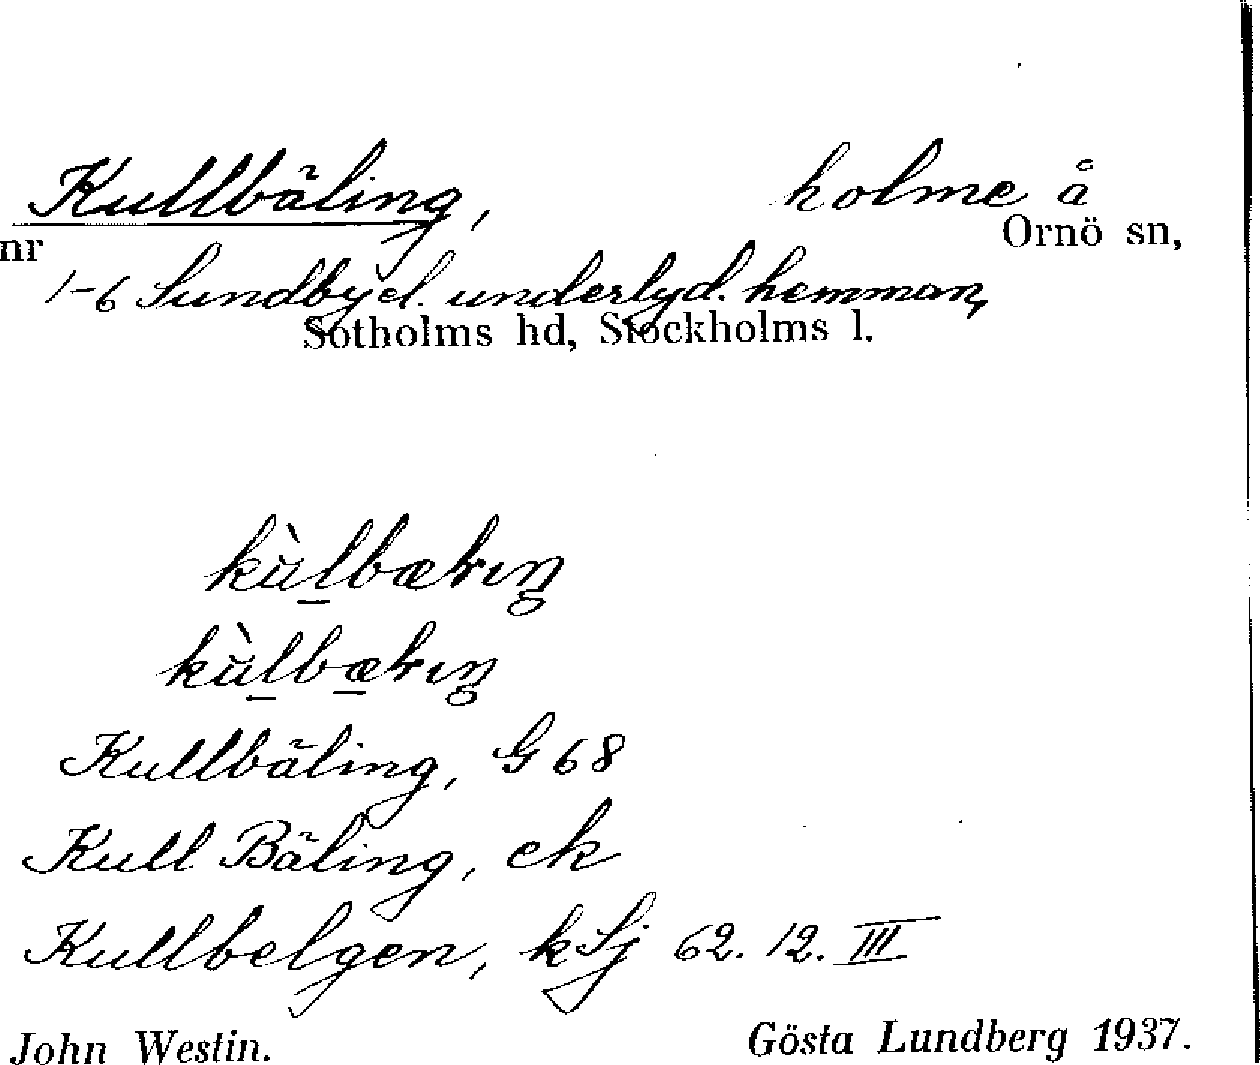 Kullbäling, holme å
Ornö sn,
nr
1-6 Sundby el. underlyd. hemman,
Sotholms hd, Stockholms l.
Kullbäling, G 68
Kull Bäling, ek
Kullbelgen, kSj 62. 12. III
John Westin. Gösta Lundberg 1937.